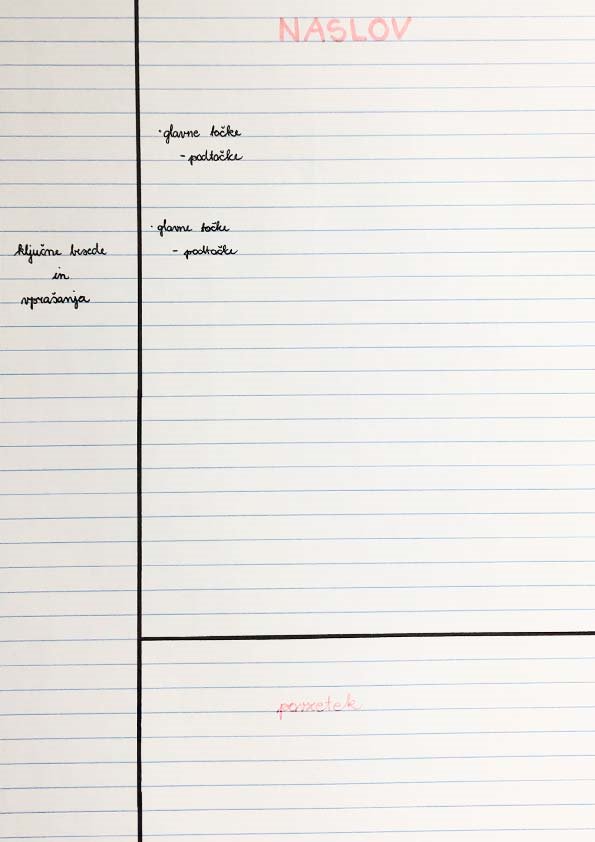 NASLOV
• glavne točke
- podtočke
• glavne točke
- podtočke
ključne besede
in
vprašanja
povzetek